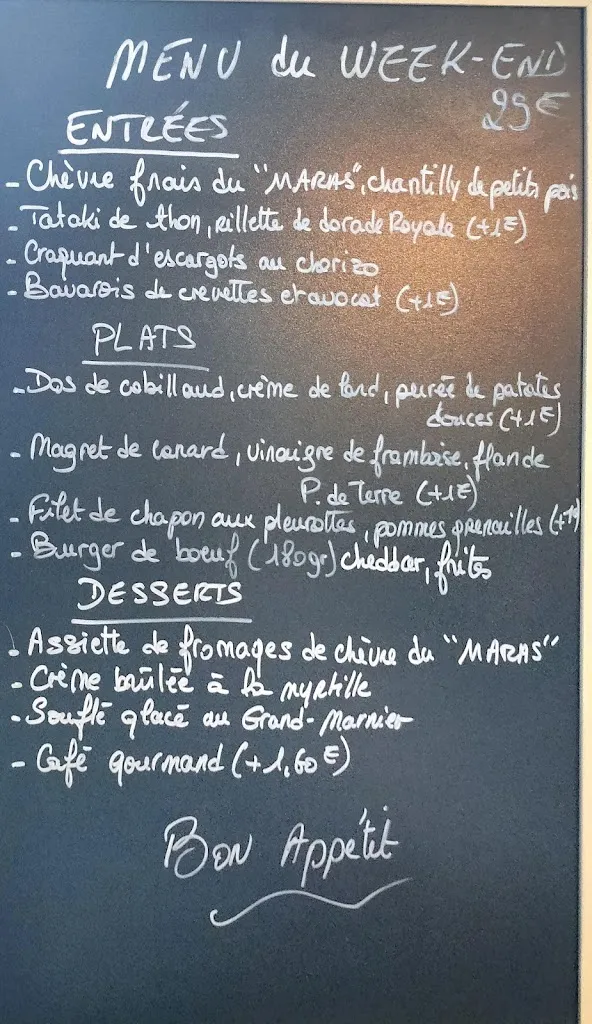 MENU du WEEK-END
29€
ENTRÉES
- Chèvre frais du "MARAS", chantilly de petits pois
- Tataki de thon, rillette de dorade Royale (+1€)
- Craquant d'escargots au chorizo
- Bavarois de crevettes et avocat (+1€)
PLATS
- Dos de cabillaud, crème de lard, purée de patates
douces (+1€)
- Magret de canard, vinaigre de framboise, flan de
P. de Terre (+1€)
- Filet de chapon aux pleurottes, pommes grenailles (+1€)
- Burger de boeuf (180gr) cheddar, frites
DESSERTS
- Assiette de fromages de chèvre du "MARAS"
- Crème brûlée à la myrtille
- Soufflé glacé au Grand-Marnier
- Café gourmand (+1,60€)
Bon Appétit